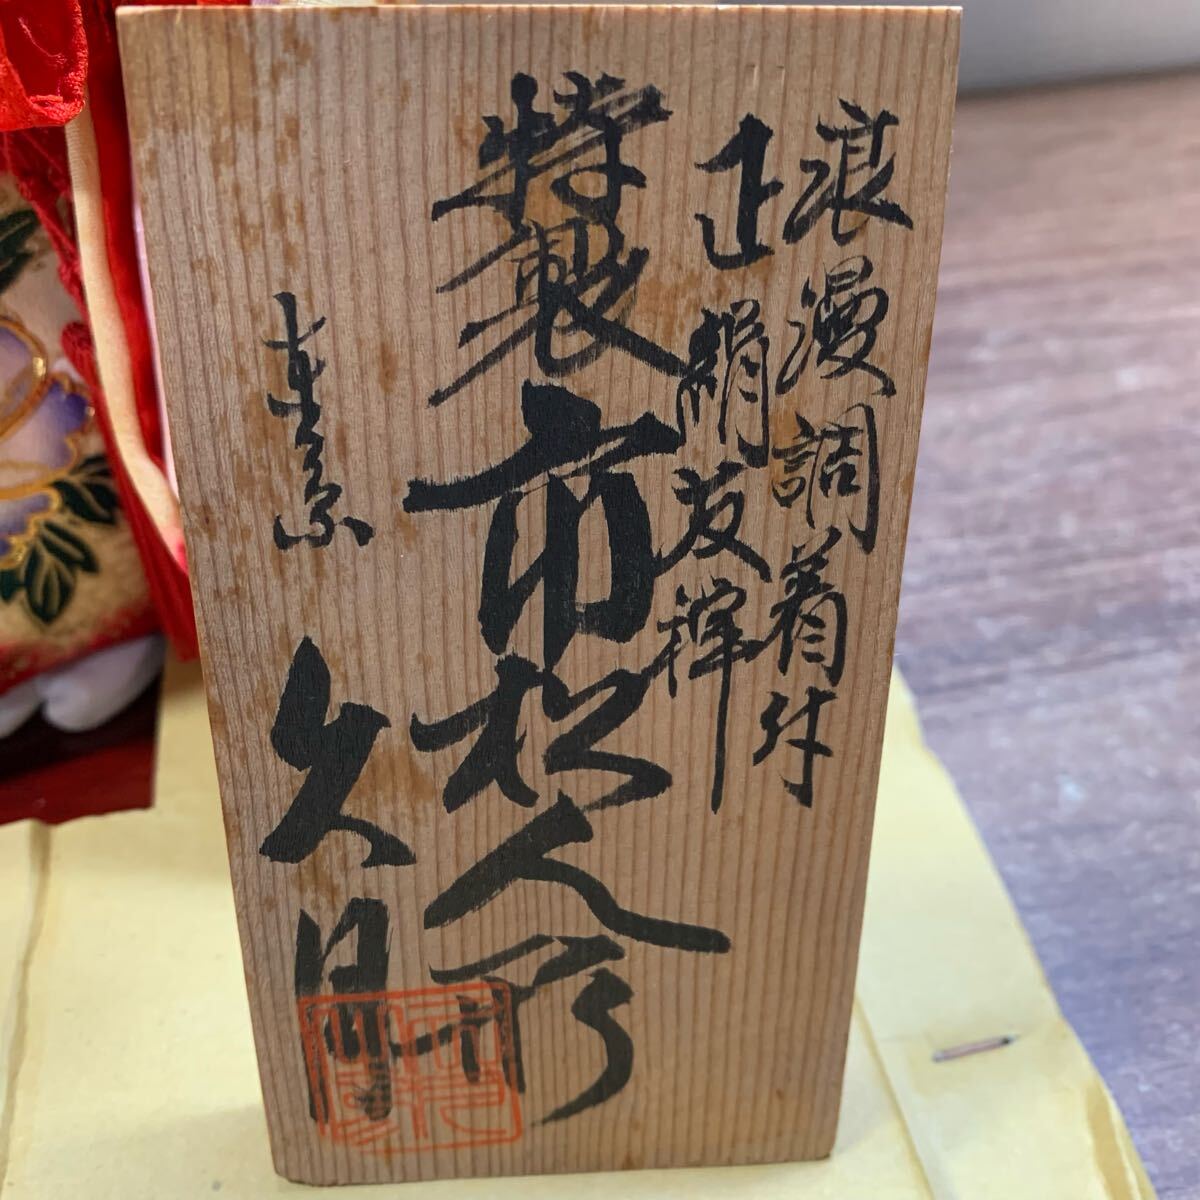 浪漫調着付
正絹友禅
特製市松人形
東京
久月